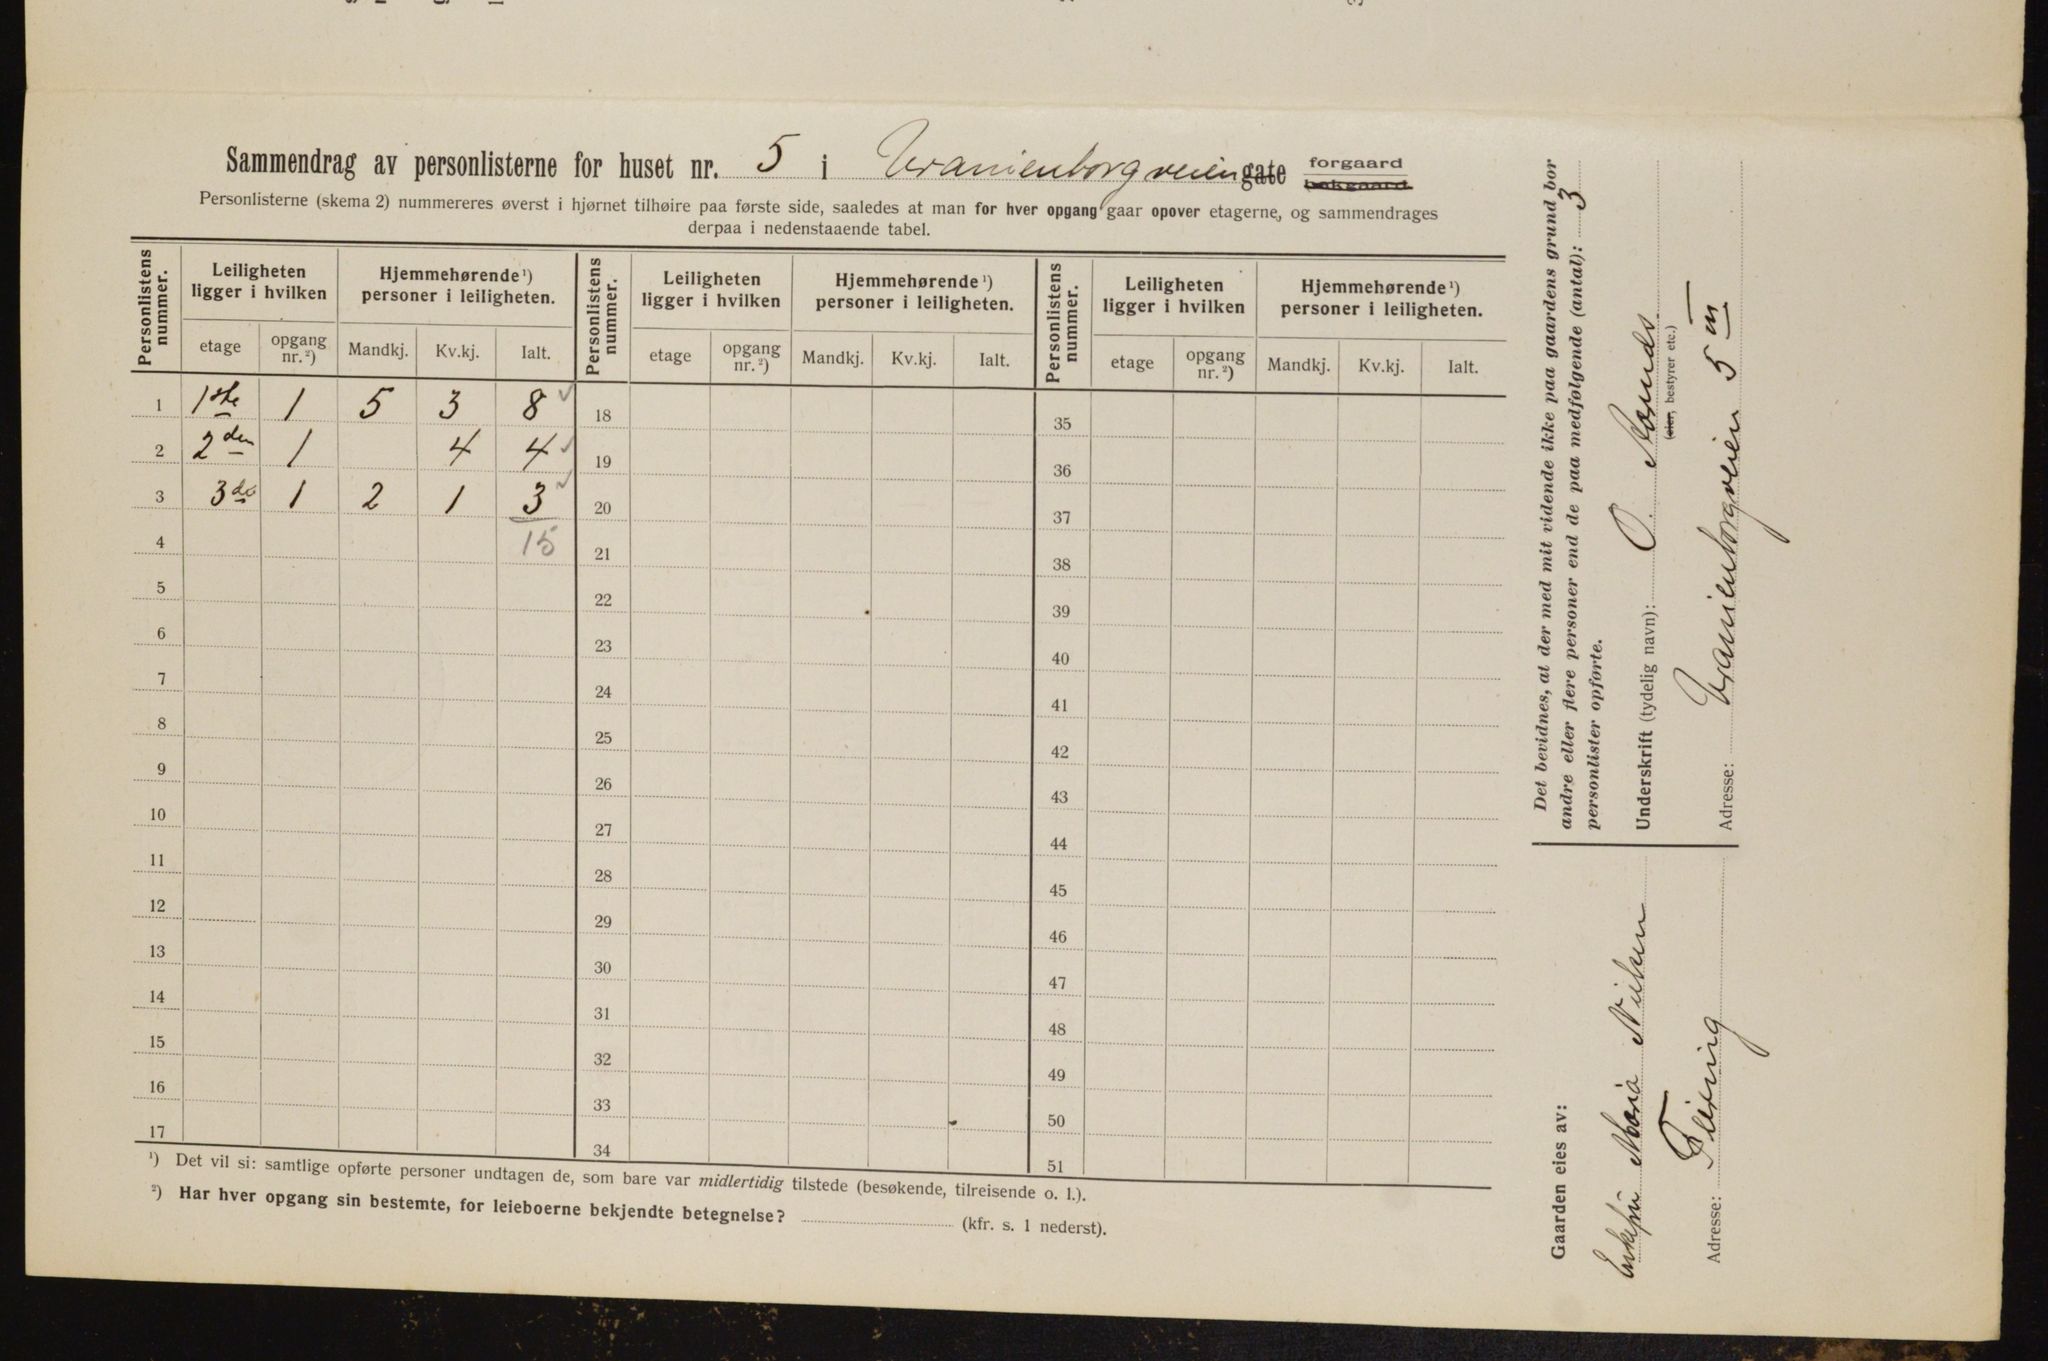 Sammendrag av personlisterne for huset nr. 5 i Uranienborgveien gate forgaard bakgaard
Personlisterne (skema 2) nummereres øverst i hjørnet tilhøire paa første side, saaledes at man for hver opgang gaar opover etagerne, og sammendrages
derpaa i nedenstaaende tabel.
Personlistens nummer. Leiligheten ligger i hvilken Hjemmehørende ¹) personer i leiligheten. Personlistens nummer. Leiligheten ligger i hvilken Hjemmehørende ¹) personer i leiligheten. Personlistens nummer. Leiligheten ligger i hvilken Hjemmehørende ¹) personer i leiligheten.
etage opgang nr. ²) Mandkj. Kv.kj. Ialt. etage opgang nr. ²) Mandkj. Kv.kj. Ialt. etage opgang nr. ²) Mandkj. Kv.kj. Ialt.
1 1ste 1 5 3 8 ✓ 18 35
2 2den 1 4 4 ✓ 19 36
3 3de 1 2 1 3 ✓ 20 37
4 15 21 38
5 22 39
6 23 40
7 24 41
8 25 42
9 26 43
10 27 44
11 28 45
12 29 46
13 30 47
14 31 48
15 32 49
16 33 50
17 34 51
¹) Det vil si: samtlige opførte personer undtagen de, som bare var midlertidig tilstede (besøkende, tilreisende o. l.).
²) Har hver opgang sin bestemte, for leieboerne bekjendte betegnelse? (kfr. s. 1 nederst).
Det bevidnes, at der med mit vidende ikke paa gaardens grund bor
andre eller flere personer end de paa medfølgende (antal): 3
personlister opførte.
Underskrift (tydelig navn): O.
(eier, bestyrer etc.)
Adresse: Uranienborgveien 5 III
Gaarden eies av:
Enkefru Maria Nilsen
Adresse: Feiring